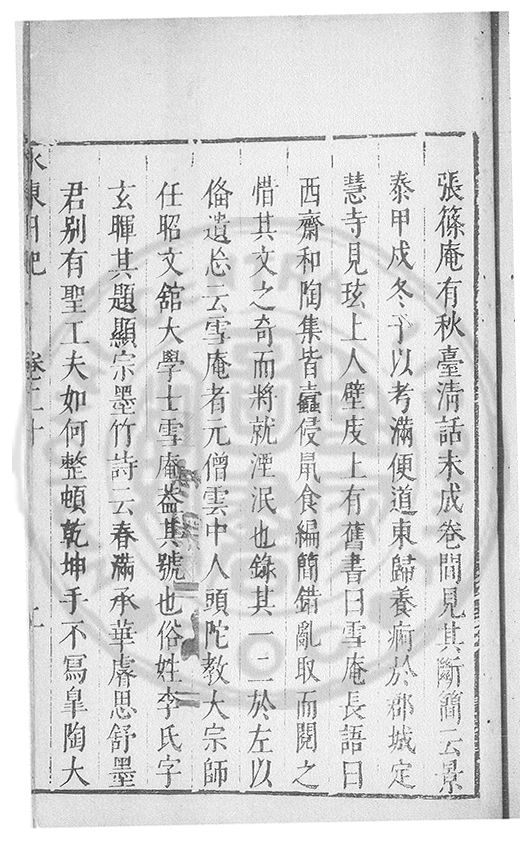 張篠庵有秋臺清話未成卷間見其斷簡云景
泰甲戌冬予以考滿便道東歸養痾於郡城定
慧寺見玹上人壁庋上有舊書曰雪庵長語曰
西齋和陶集皆蠧侵鼠食編簡錯亂取而閱之
惜其文之奇而將就湮泯也錄其一二於左以
俻遺忘云雪庵者元僧雲中人頭陀教大宗師
任昭文舘大學士雪庵葢其號也俗姓李氏字
玄暉其題顯宗墨竹詩云春滿承華睿思舒墨
君别有聖工夫如何整頓乾坤手不寫臯陶大
水東日記 卷二十